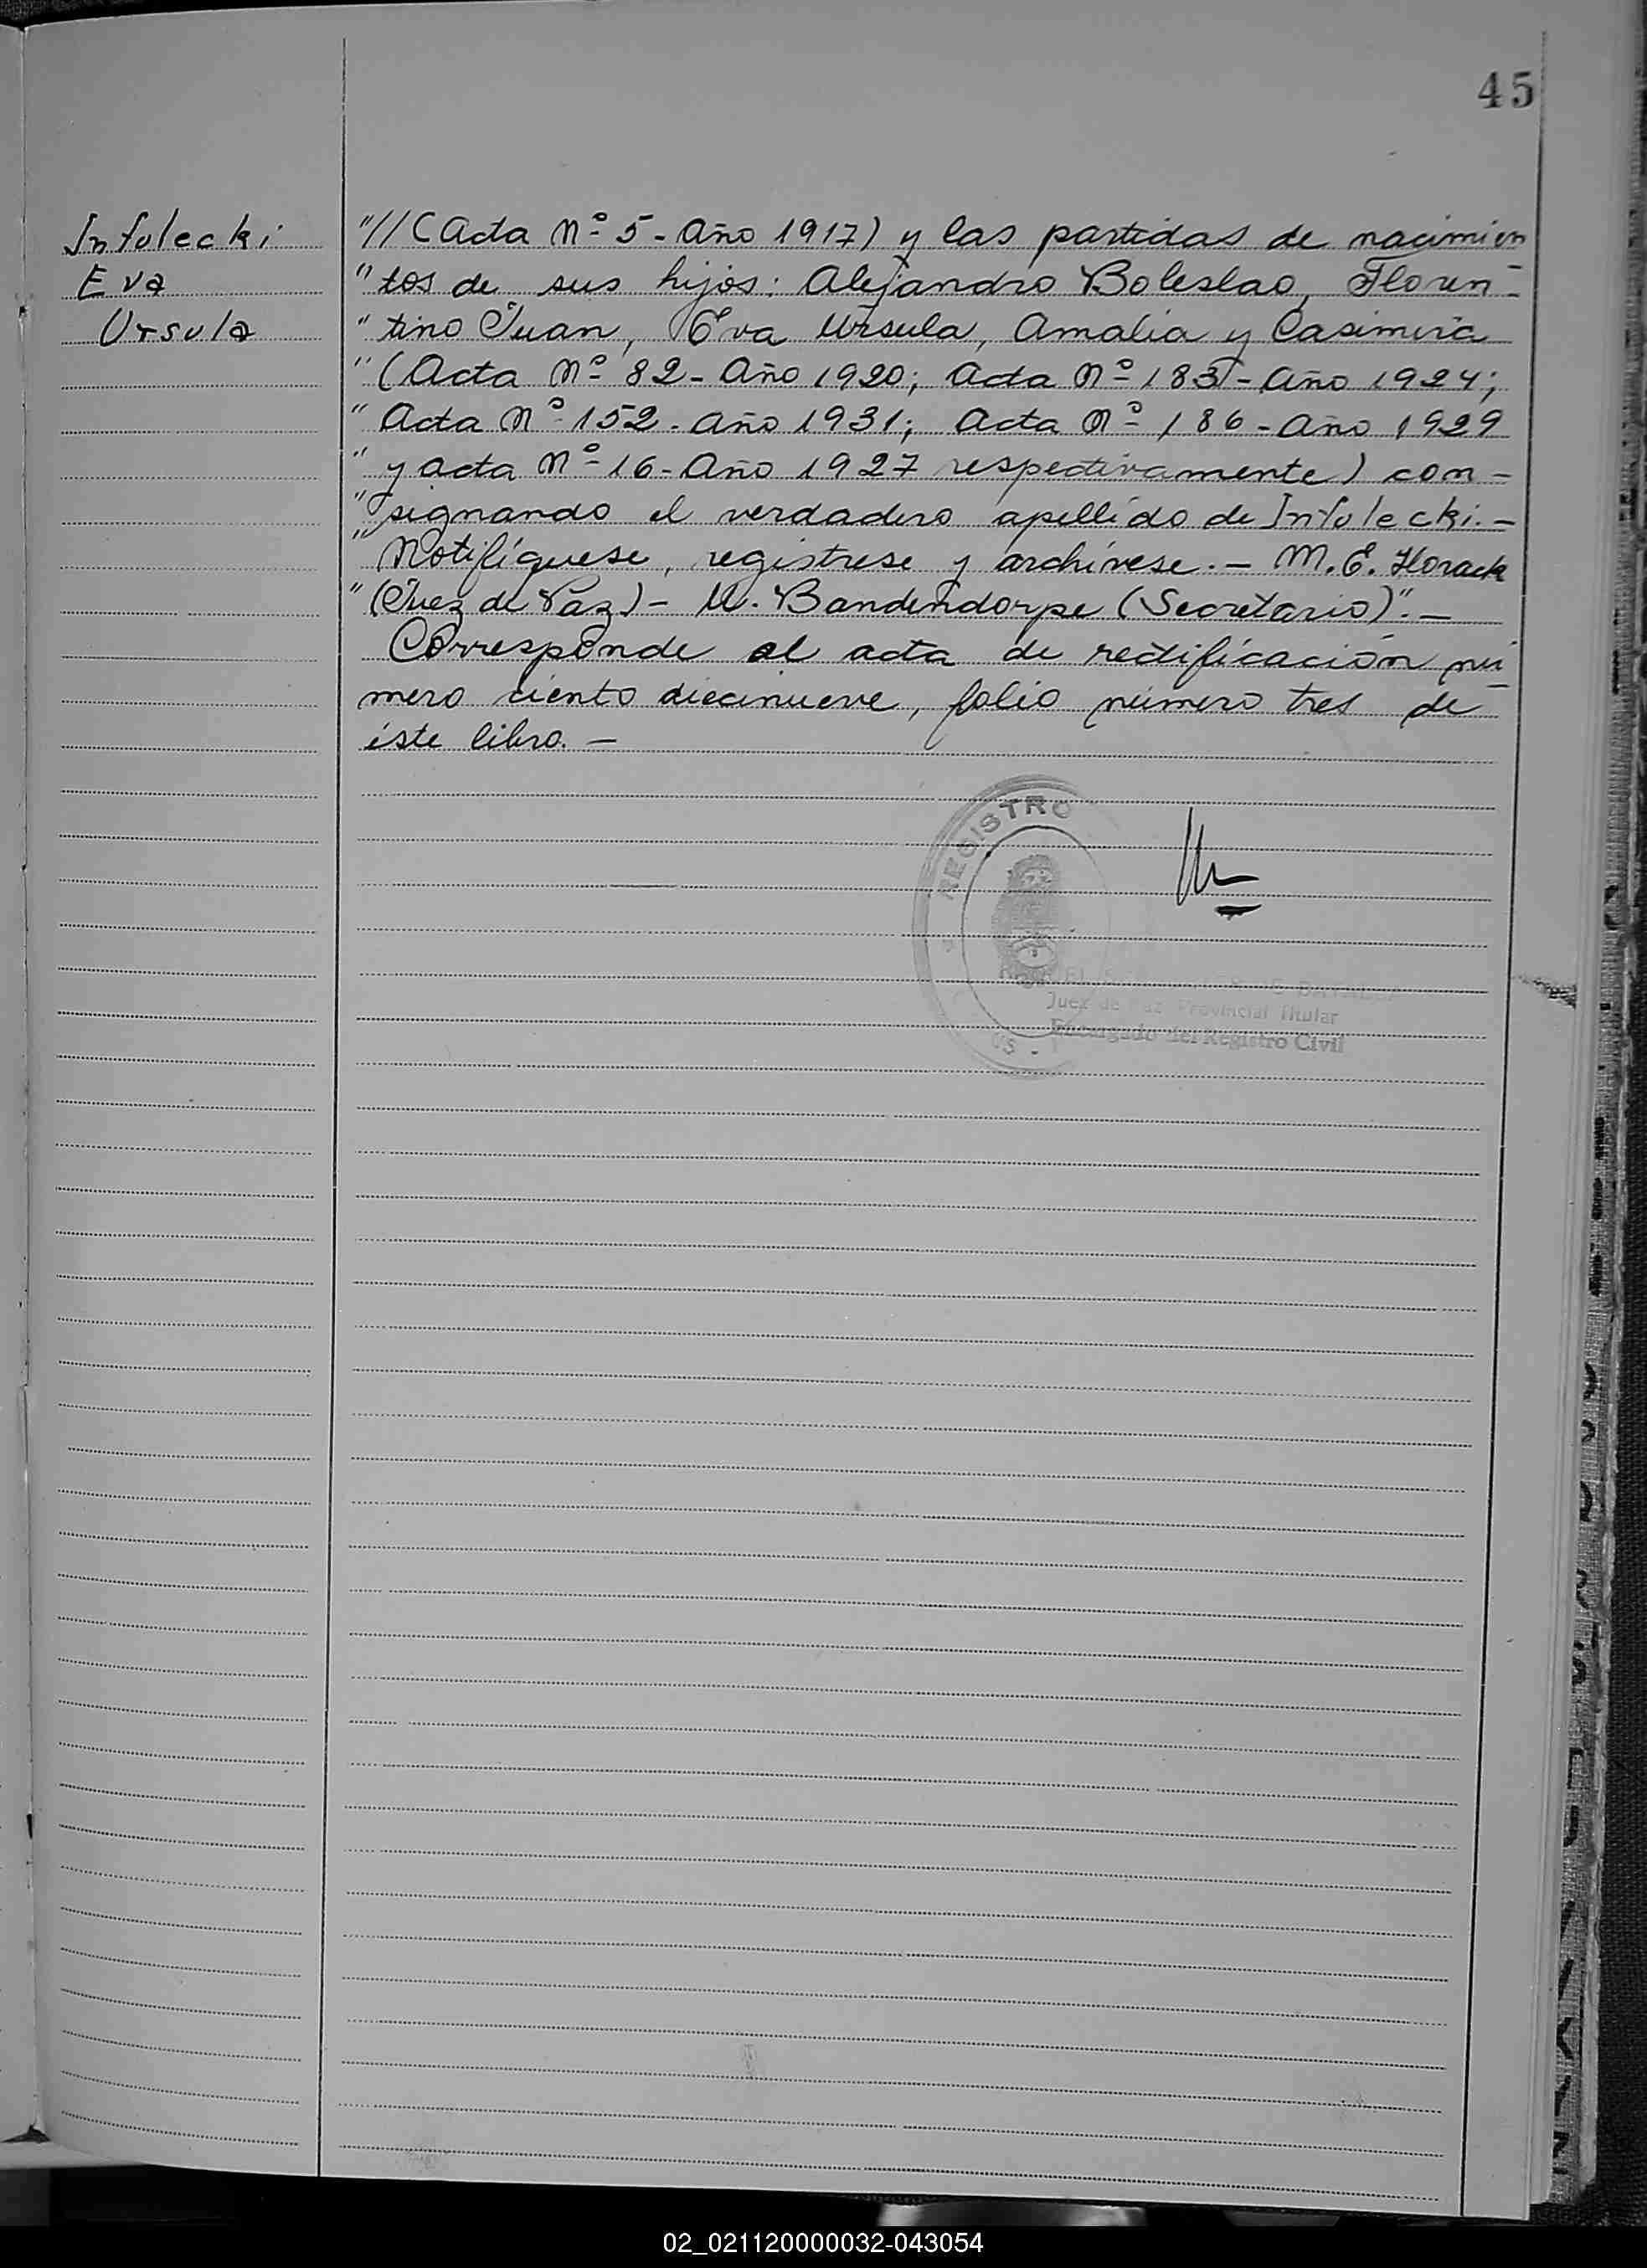 45
Intolecki
Eva
Ursula
"//(Acta Nº 5 - Año 1917) y las partidas de nacimien
"tos de sus hijos: Alejandro Boleslao, Floren-
"tino Juan, Eva Ursula, Amalia y Casimira
"(Acta Nº 82 - Año 1920; Acta Nº 183 - Año 1924;
"Acta Nº 152 - Año 1931; Acta Nº 186 - Año 1929
"y acta Nº 16 - Año 1927 respectivamente) con-
"signando el verdadero apellido de Intolecki. -
"Notifíquese, regístrese y archívese. - M. E. Horack
"(Juez de Paz) - M. Bandendorpe (Secretario)". -
Corresponde al acta de rectificación nú
mero ciento diecinueve, folio número tres de
éste libro. -
REGISTRO
Juez de Paz Provincial Titular
Encargado del Registro Civil
02_021120000032-043054